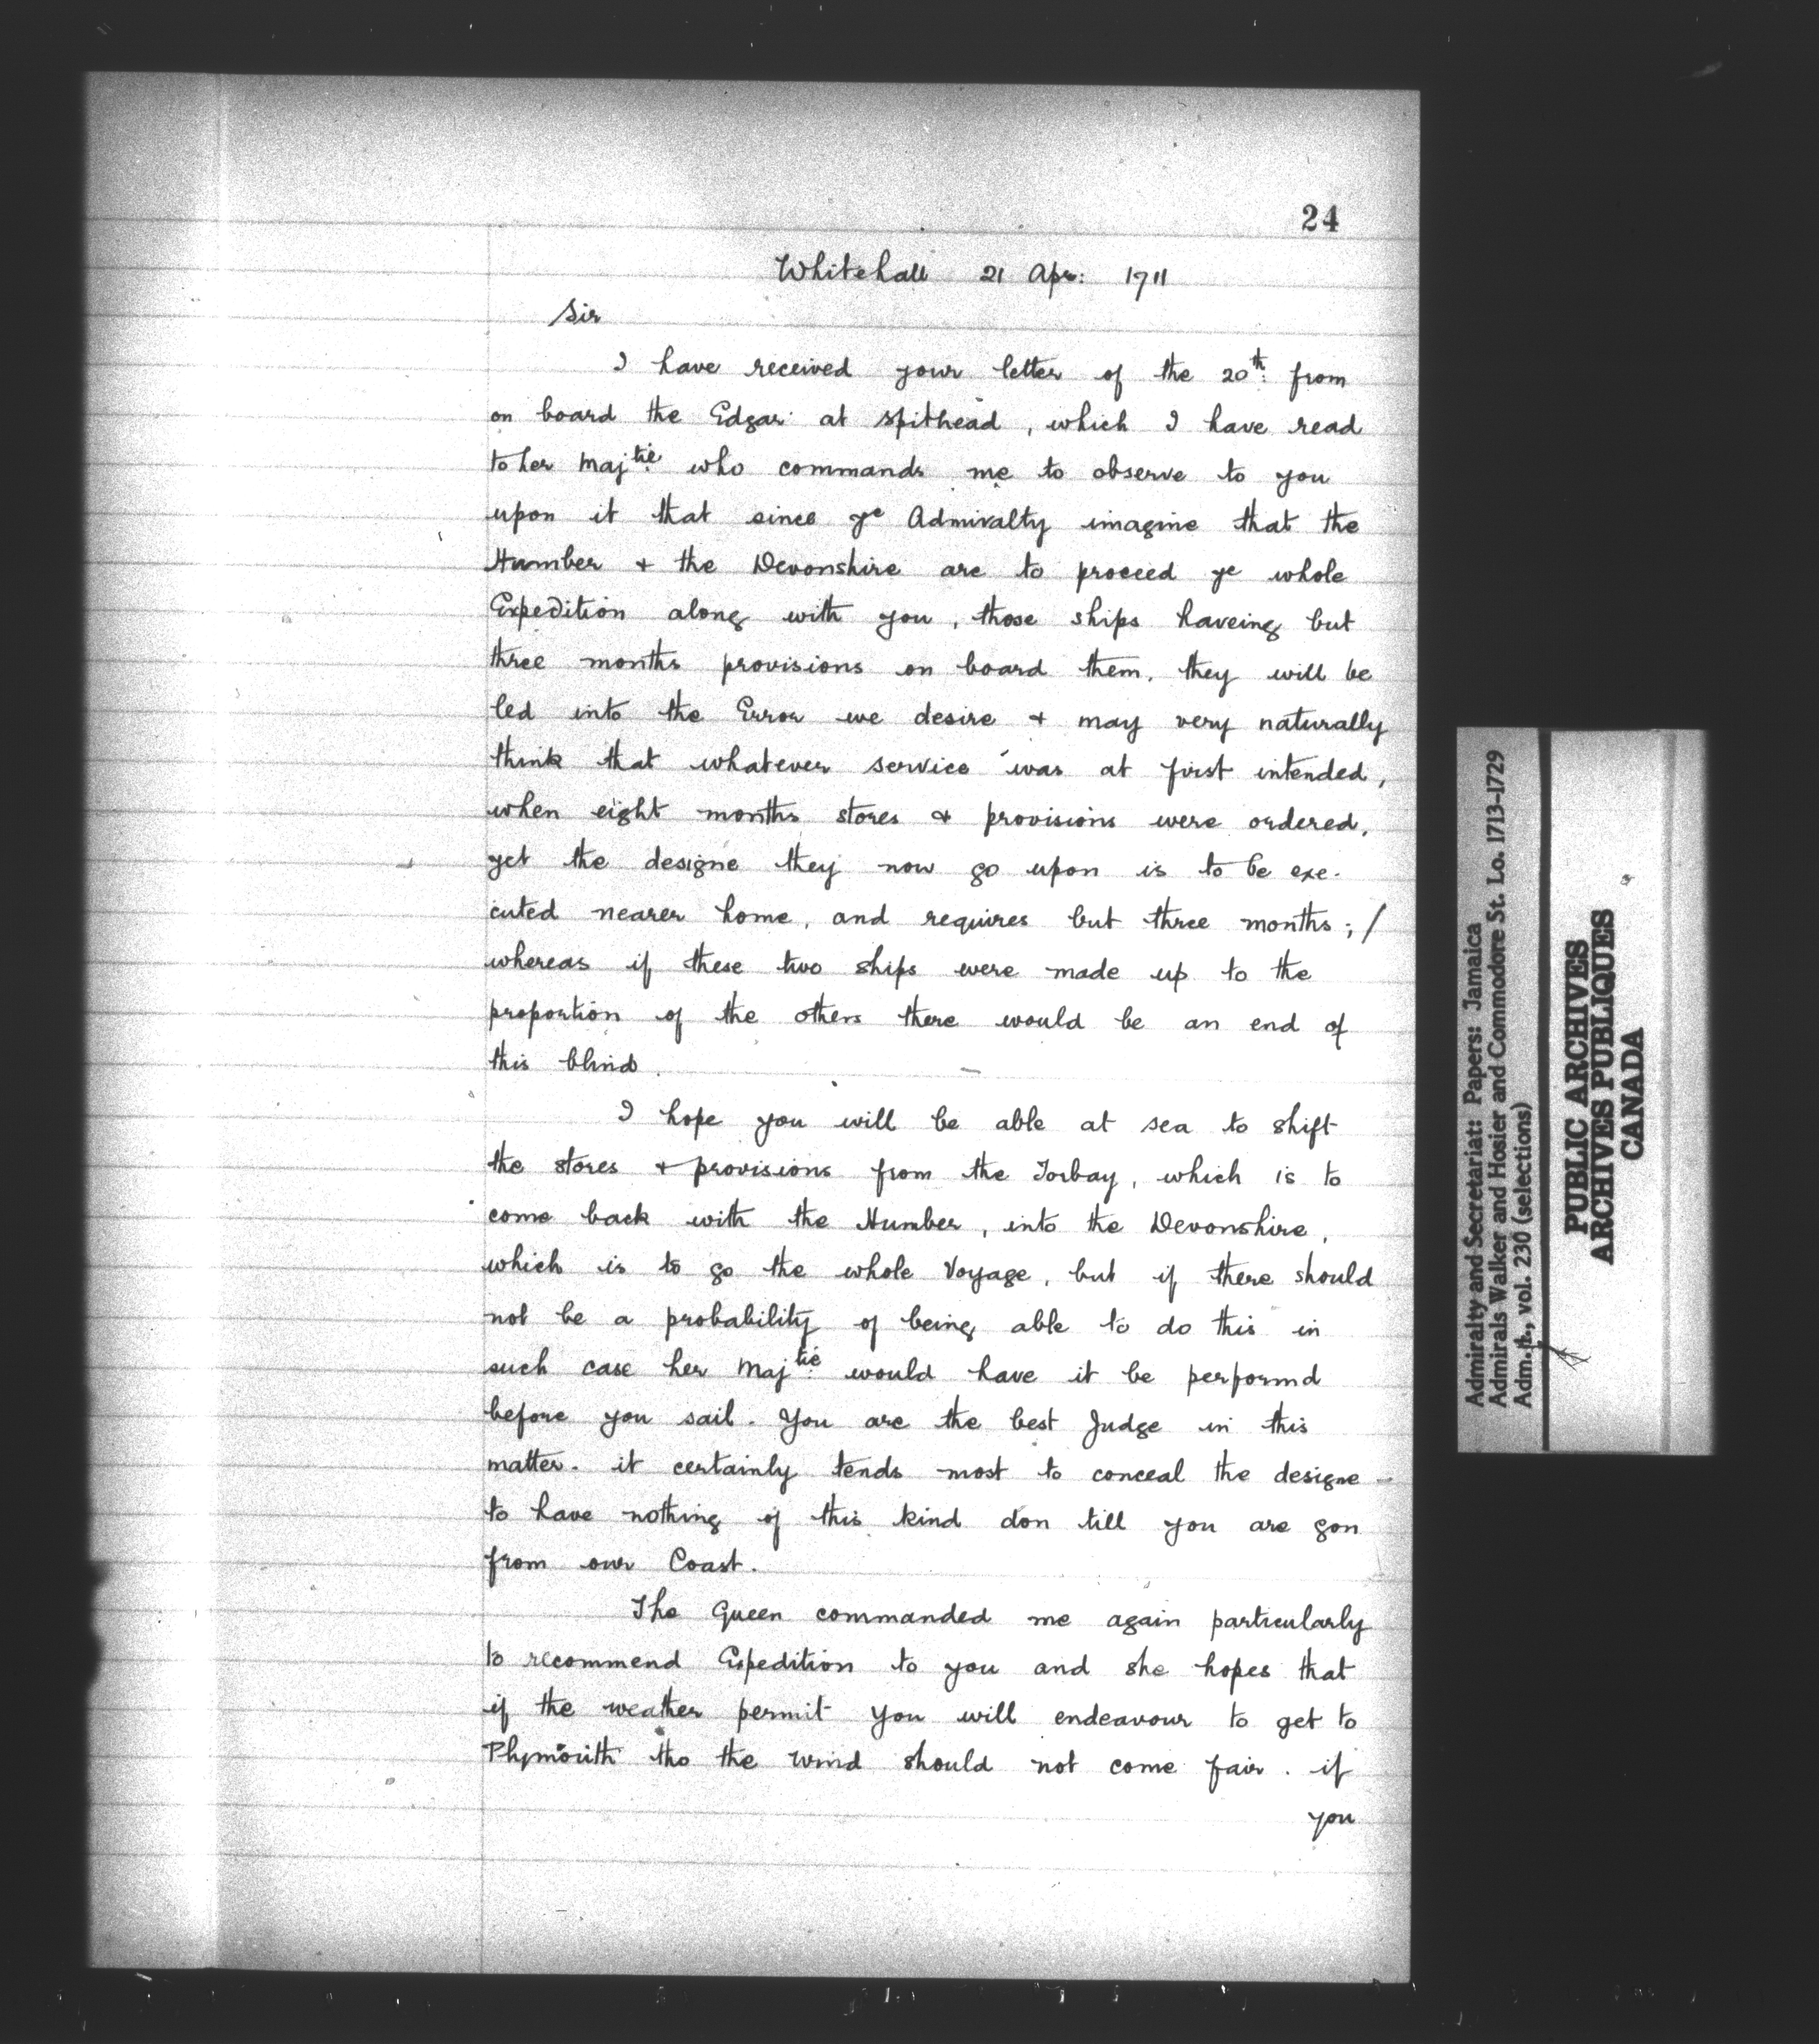 24
Whitehall 21 Apr: 1711
Sir
I have received your letter of the 20th: from
on board the Edgar at Spithead, which I have read
to her Majtie who commands me to observe to you
upon it that since ye Admiralty imagine that the
Humber + the Devonshire are to proceed ye whole
Expedition along with you, those ships haveing but
three months provisions on board them, they will be
led into the Error we desire + may very naturally
think that whatever service was at first intended,
when eight months stores & provisions were ordered,
yet the designe they now go upon is to be exe-
cuted nearer home, and requires but three months; /
whereas if these two ships were made up to the
proportion of the others there would be an end of
this blind.
I hope you will be able at sea to shift
the stores + provisions from the Torbay, which is to
come back with the Humber, into the Devonshire,
which is to go the whole Voyage, but if there should
not be a probability of being able to do this in
such case her Majtie would have it be performd
before you sail. You are the best Judge in this
matter. it certainly tends most to conceal the designe
to have nothing of this kind don till you are gon
from our Coast.
The Queen commanded me again particularly
to recommend Expedition to you and she hopes that
if the weather permit you will endeavour to get to
Plymouth tho the wind should not come fair. if
you
Admiralty and Secretariat: Papers: Jamaica
Admirals Walker and Hosier and Commodore St. Lo. 1713-1729
Adm. 1, vol. 230 (selections)
PUBLIC ARCHIVES
ARCHIVES PUBLIQUES
CANADA